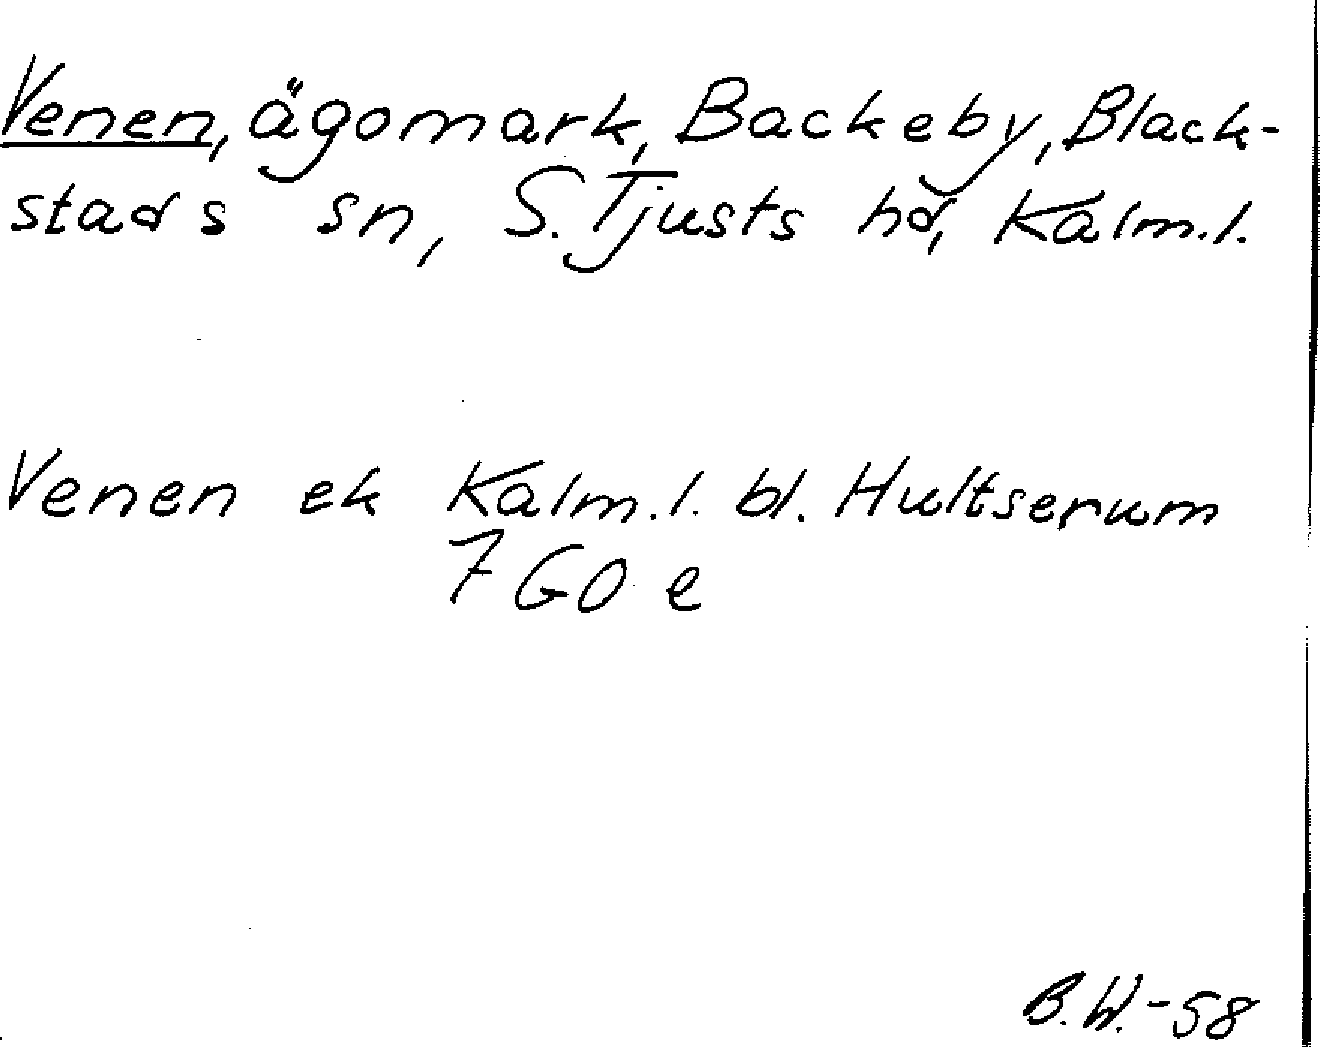 Venen, ägomark, Backeby, Black-
stads sn, S. Tjusts hd, Kalm.l.
Venen ek Kalm.l. bl. Hultserum
7 GO e
B.W.-58